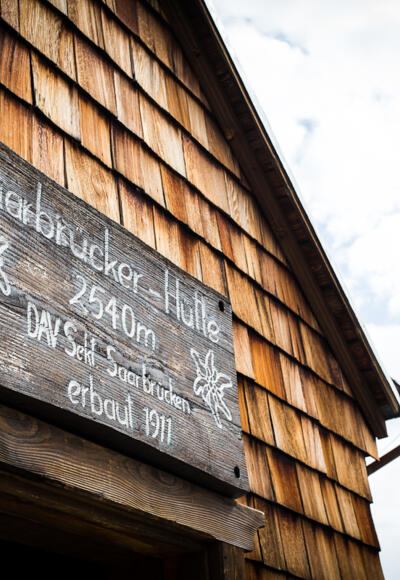 arbrücker-Hütte
2540m
DAV Sekt Saarbrücken
erbaut 1911